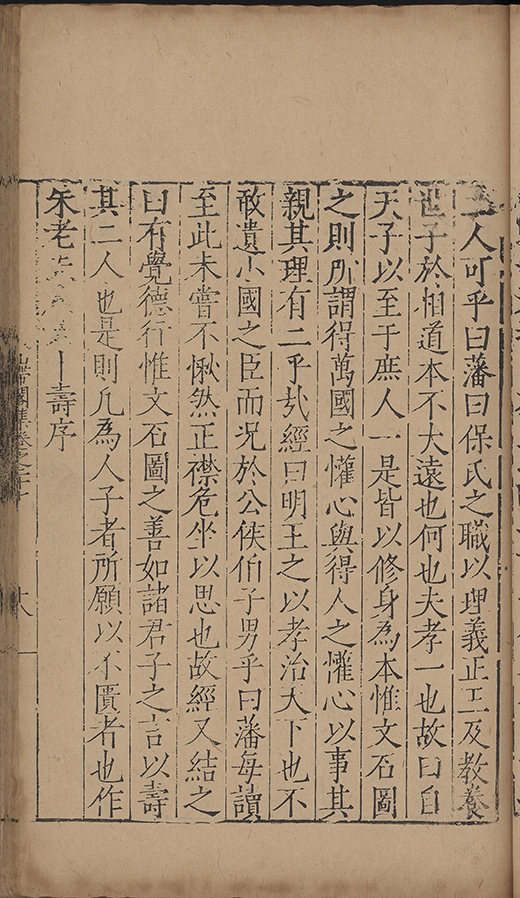 人可乎曰藩曰保氏之職以理義正王及教養
世子於相道本不大遠也何也夫孝一也故曰自
天子以至于庶人一是皆以修身為本惟文石圖
之則所謂得萬國之懽心與得人之懽心以事其
親其理有二乎㢤經曰明王之以孝治天下也不
敢遺小國之臣而况於公侯伯子男乎曰藩每讀
至此未嘗不愀然正襟危坐以思也故經又結之
曰有覺德行惟文石圖之善如諸君子之言以壽
其二人也是則凡為人子者所願以不匱者也作
朱老 壽序
山帶閣集卷之 十
十八